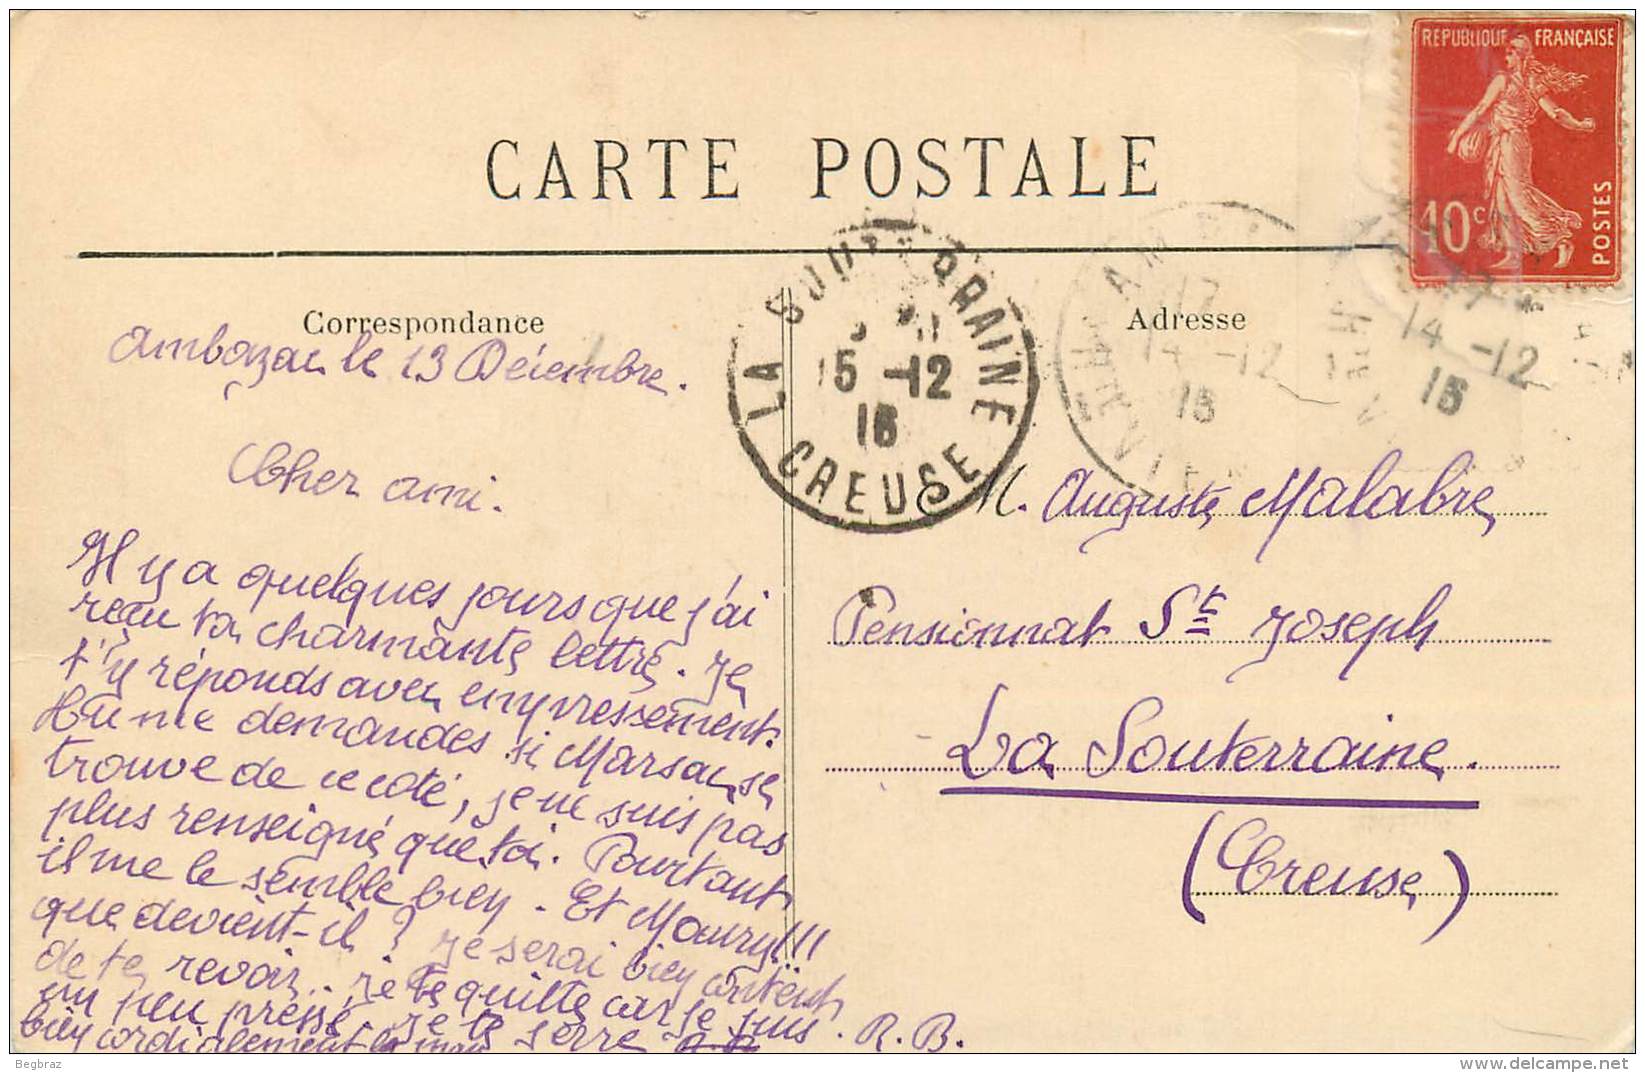 REPUBLIQUE FRANÇAISE
10 c
POSTES
CARTE POSTALE
LA SOUTERRAINE
15 -12
15
CREUSE
14 -12
15
14 -12
15
Correspondance
Adresse
Ambazac le 13 Décembre.
Cher ami.
Il y a quelques jours que j'ai
reçu ta charmante lettre. Je
t'y réponds avec empressement.
Tu me demandes si Marsac se
trouve de ce coté, je ne suis pas
plus renseigné que toi. Pourtant
il me le semble bien. Et Maury!!!
que devient-il? Je serai bien content
de te revoir. Je te quitte car je suis
un peu pressé, je te serre
bien cordialement la main
R. B.
M. Auguste Malabre
Pensionnat St Joseph
La Souterraine.
(Creuse)
Begbraz
delcampe.net